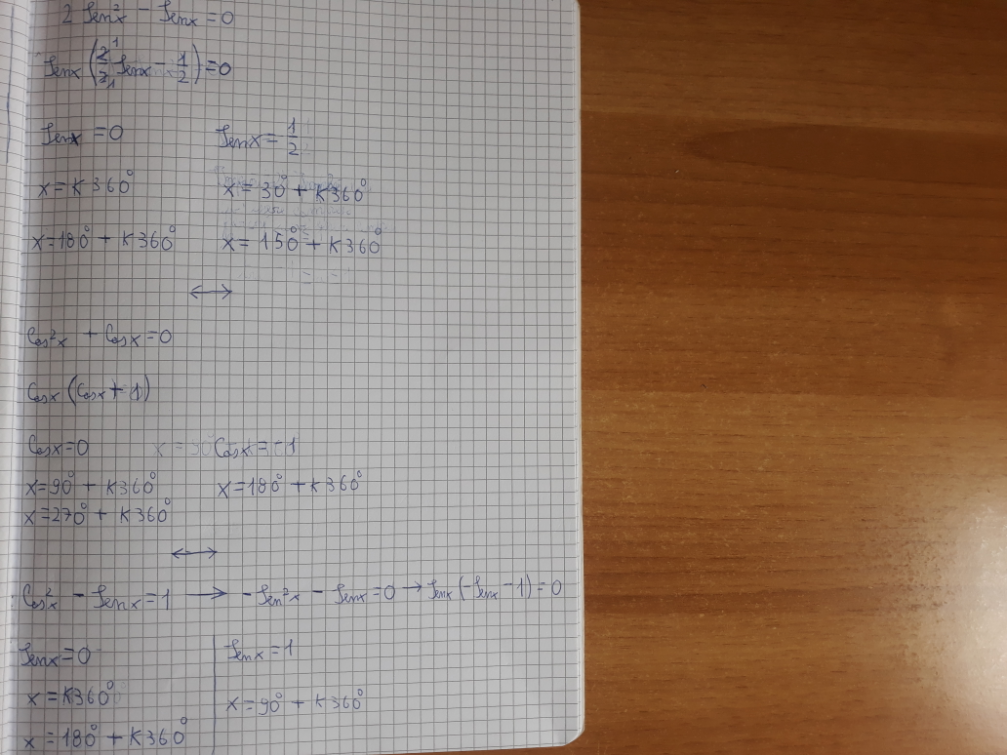 2 Sen²x - Senx = 0
Senx (2/2 Senx - 1/2) = 0
Senx = 0 Senx = 1/2
x = K360° x = 30° + K360°
x = 180° + K360° x = 150° + K360°
↔
Cos²x + Cosx = 0
Cosx (Cosx + 1)
Cosx = 0 Cosx = -1
x = 90° + K360° x = 180° + K360°
x = 270° + K360°
↔
Cos²x - Senx = 1 → - Sen²x - Senx = 0 → Senx (-Senx - 1) = 0
Senx = 0 Senx = 1
x = K360° x = 90° + K360°
x = 180° + K360°